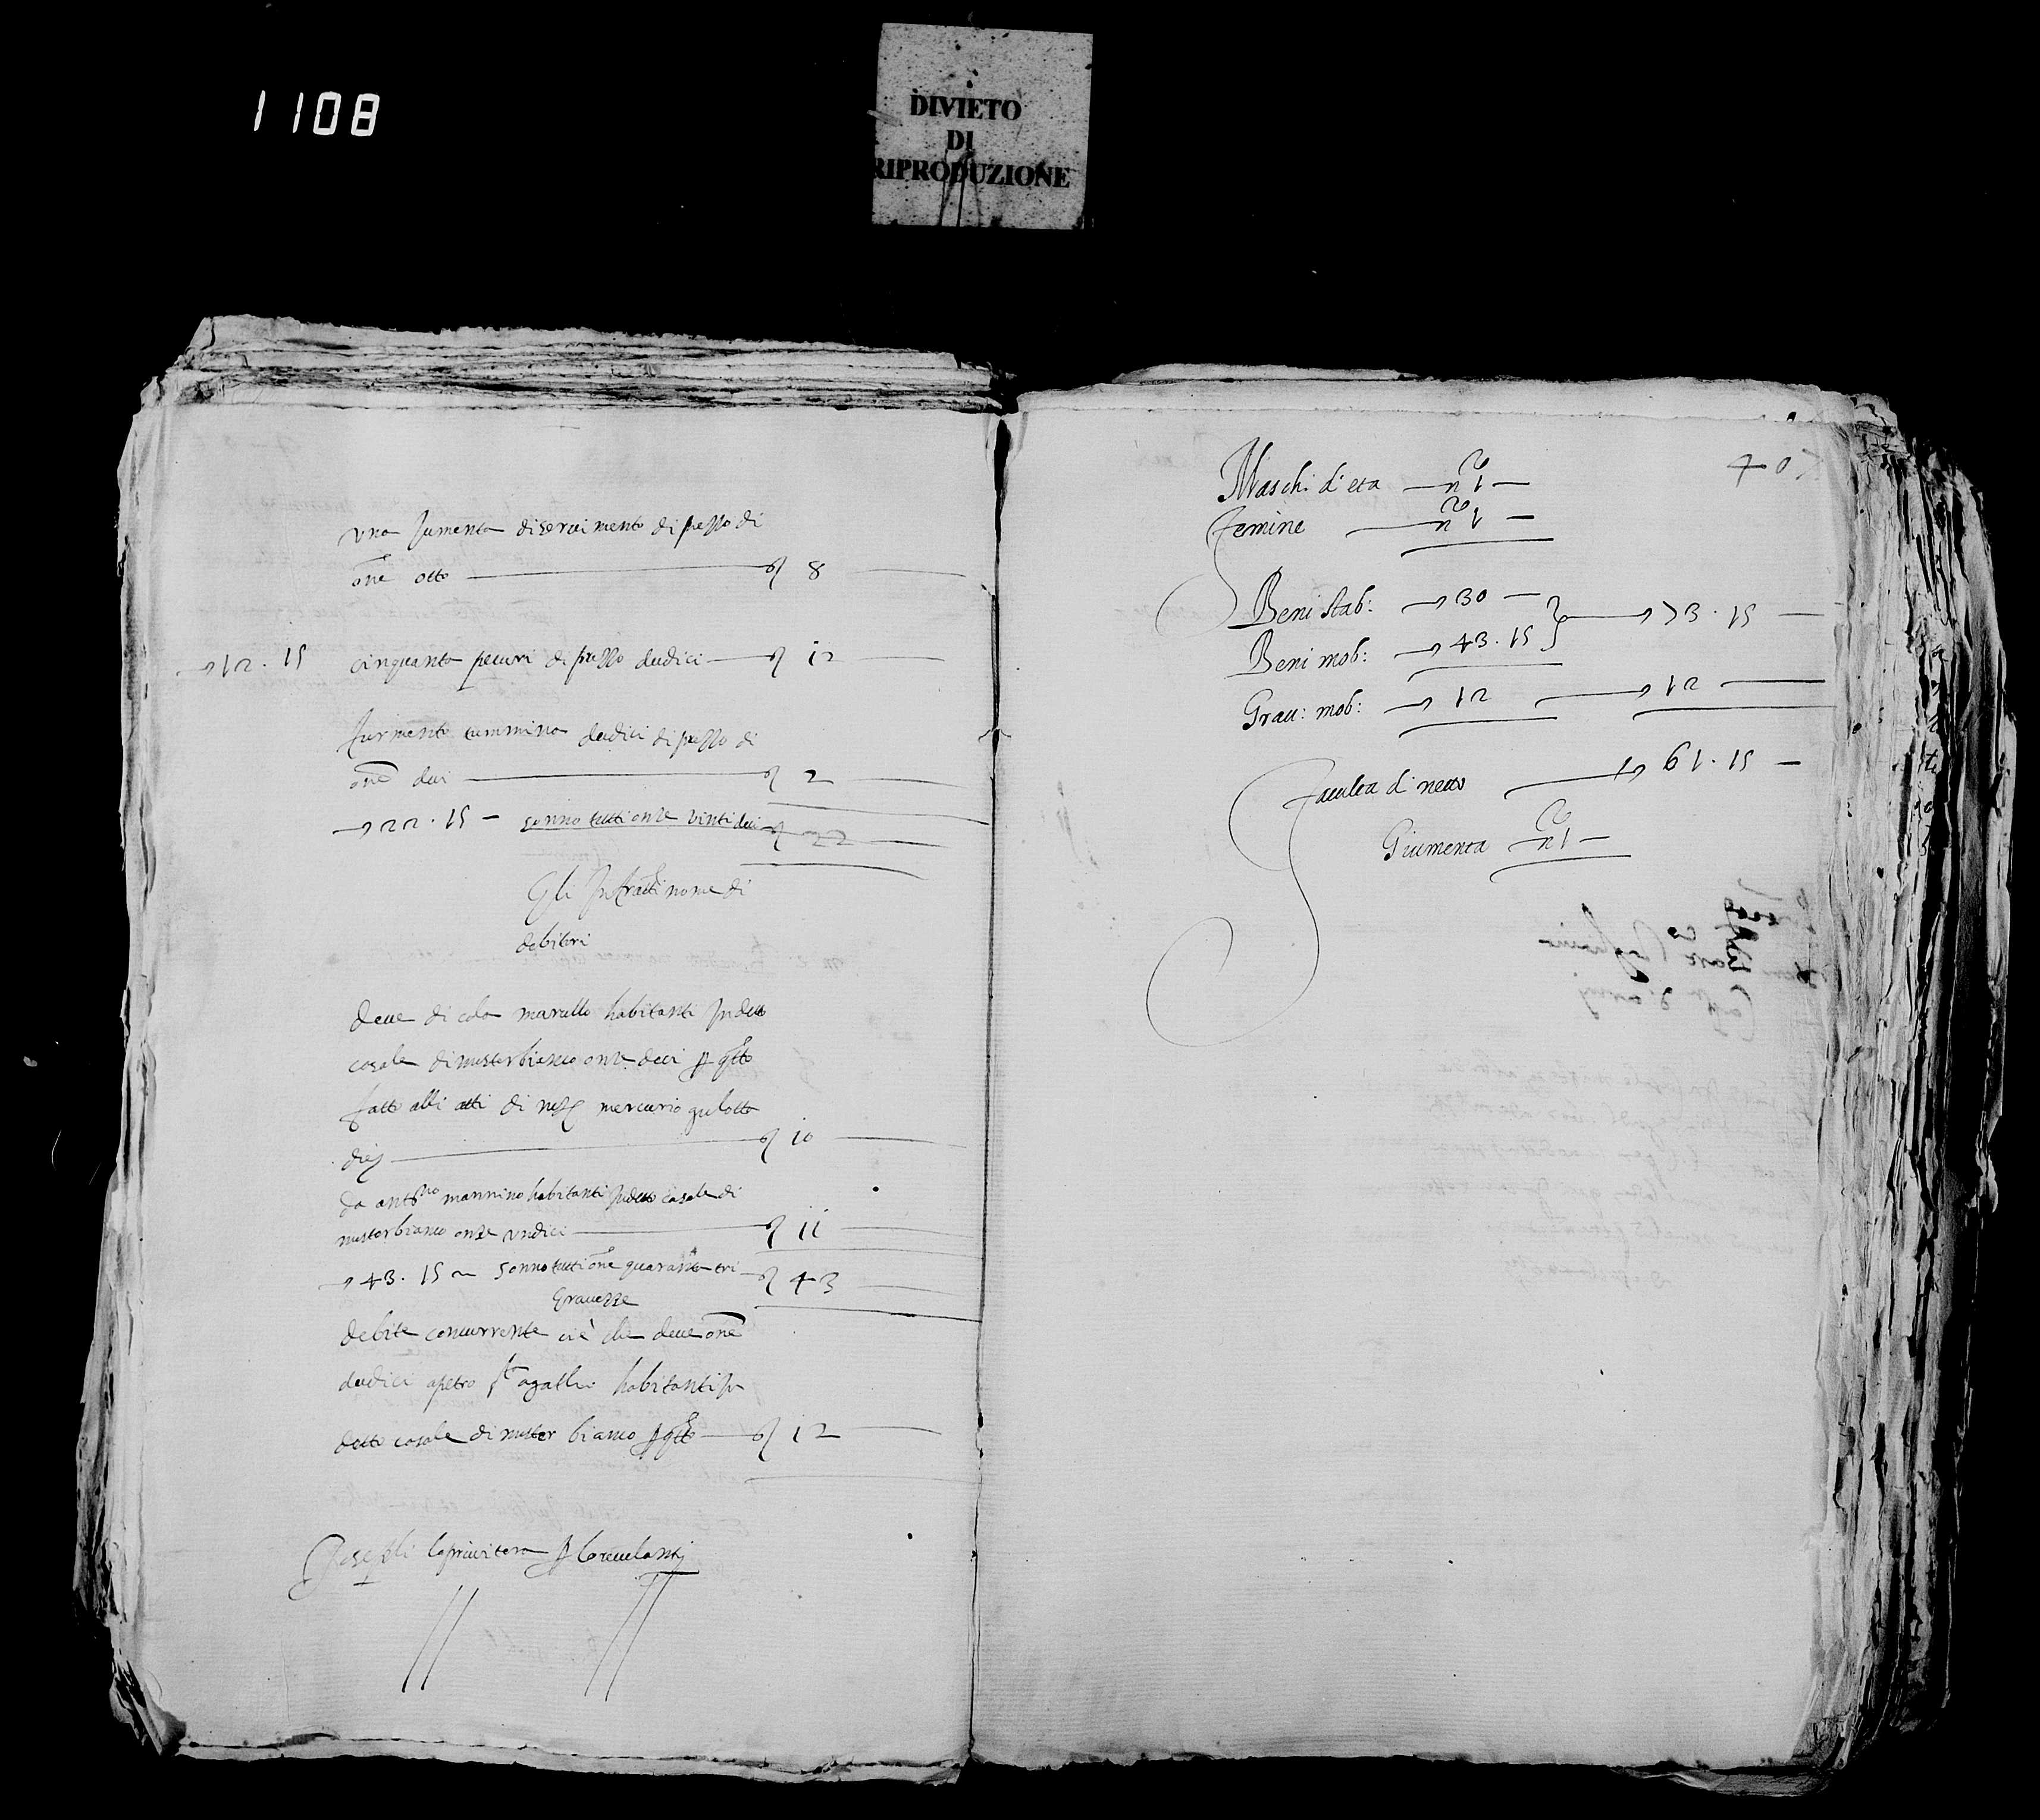 1108
DIVIETO
DI
RIPRODUZIONE
una Jumenta di servimento di prezzo di
onze otto 8
12.15 cinquanta pecuri di prezzo dudici 12
furmento tummina dudici di prezzo di
onze dui 2
22.15 sonno tutti onze vinti dui 22
Gli Infratti nome di
debitori
deve di cola marullo habitanti In detto
casale di misterbianco onze deci
fatto alli atti di mercurio gulotto
10
da mannino habitanti In detto casale di
misterbianco onze undici 11
43.15 sonno tutti onze quaranta tri 43
Gravezze
debite concurrente ciè che deve onze
dudici a petro agathi habitanti In
detto casale di mister bianco 12
Joseph laprivitera
40
Maschi d'eta n.º 1
Femine n.º 1
Beni stab: 30
73.15
Beni mob: 43.15
Grav: mob: 12 12
Faculta di netto 61.15
Giumenta n.º 1